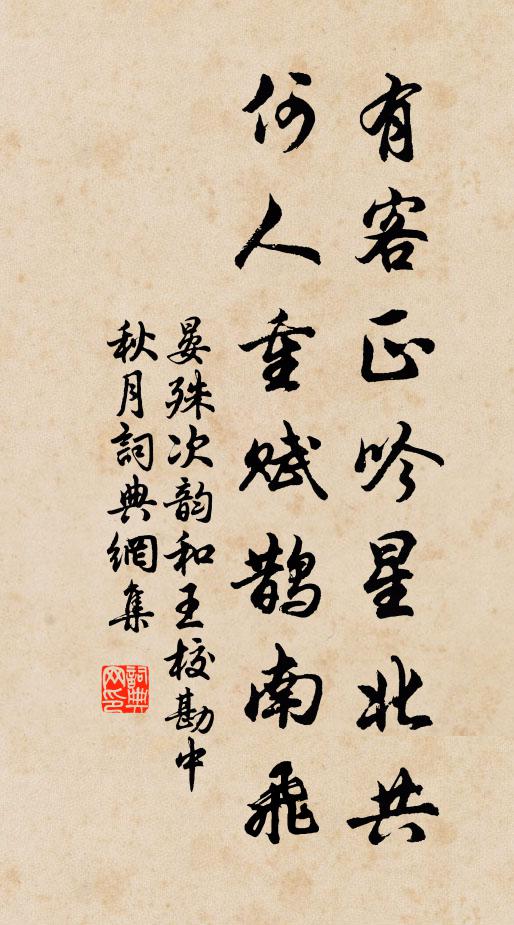 有客正吟星北共
何人重赋鹊南飞
晏殊次韵和王校勘中
秋月詞典網集
詞典
网印